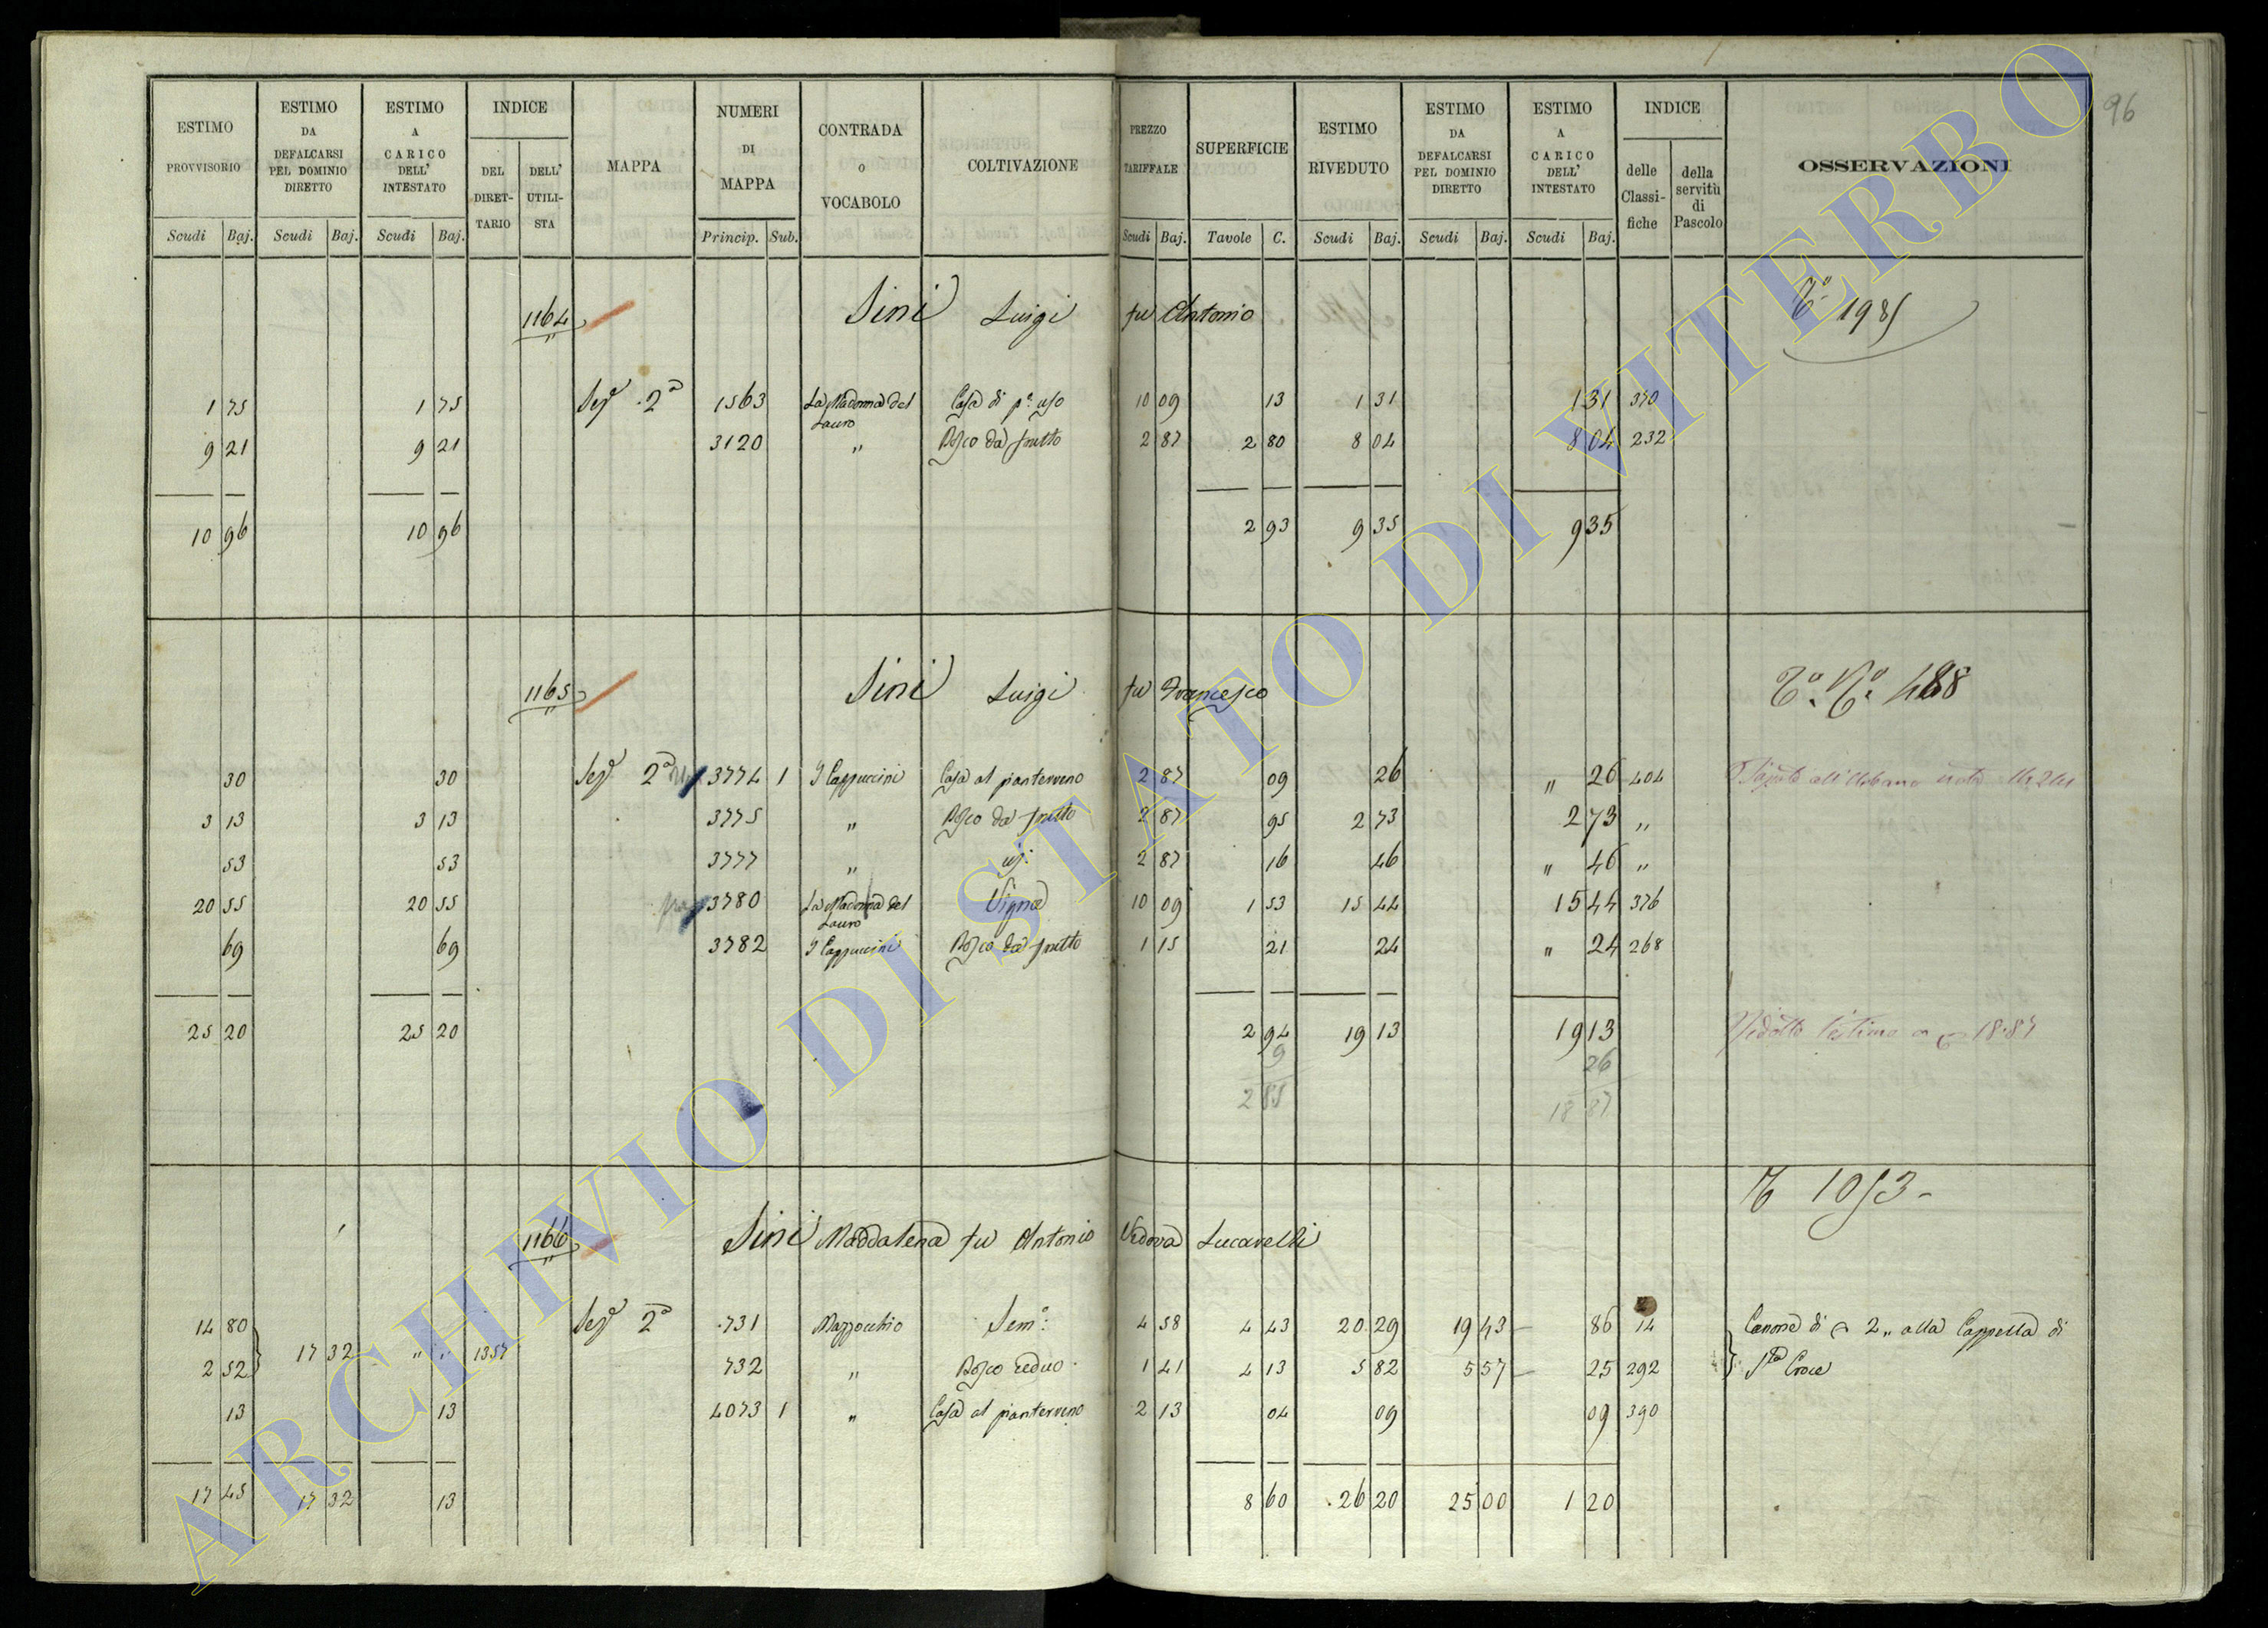 96
ESTIMO PROVVISORIO | ESTIMO DA DEFALCARSI PEL DOMINIO DIRETTO | ESTIMO A CARICO DELL' INTESTATO | INDICE | MAPPA | NUMERI DI MAPPA | CONTRADA o VOCABOLO | COLTIVAZIONE | PREZZO TARIFFALE | SUPERFICIE | ESTIMO RIVEDUTO | ESTIMO DA DEFALCARSI PEL DOMINIO DIRETTO | ESTIMO A CARICO DELL' INTESTATO | INDICE | OSSERVAZIONI
DEL DIRETTARIO | DELL' UTILISTA | delle Classifiche | della servitù di Pascolo
Scudi | Baj. | Scudi | Baj. | Scudi | Baj. | Princip. | Sub. | Scudi | Baj. | Tavole | C. | Scudi | Baj. | Scudi | Baj. | Scudi | Baj.
1164 Sini Luigi fu Antonio 1985
1 75 1 75 Sez.e 2a 1563 La Madonna del Lauro Casa di p.o uso 10 09 13 1 31 1 31 370
9 21 9 21 3120 " Bosco da frutto 2 87 2 80 8 04 8 04 232
10 96 10 96 2 93 9 35 9 35
1165 Sini Luigi fu Francesco 488
30 30 Sez.e 2a 3774 1 I Cappuccini Casa al pianterreno 2 87 09 26 " 26 404
3 13 3 13 3775 " Bosco da frutto 2 87 95 2 73 2 73 "
53 53 3777 " 2 87 16 46 " 46 "
20 55 20 55 3780 La Madonna del Lauro Vigna 10 09 1 53 15 44 15 44 376
69 69 3782 I Cappuccini Bosco da frutto 1 15 21 24 " 24 268
25 20 25 20 2 94 19 13 19 13 Ridotto l'estimo a 18.87
9 26
2 85 18 87
1053
1166 Sini Maddalena fu Antonio Vedova Lucarelli
14 80 Sez.e 2a 731 Mazzocchio Sem.o 4 58 4 43 20 29 19 43 86 14 Canone di 2,, alla Cappella di
2 52 17 32 " " 1357 732 " Bosco ceduo 1 41 4 13 5 82 5 57 25 292 S.ta Croce
13 13 4073 1 " Casa al pianterreno 2 13 04 09 09 390
17 45 17 32 13 8 60 26 20 25 00 1 20
ARCHIVIO DI STATO DI VITERBO